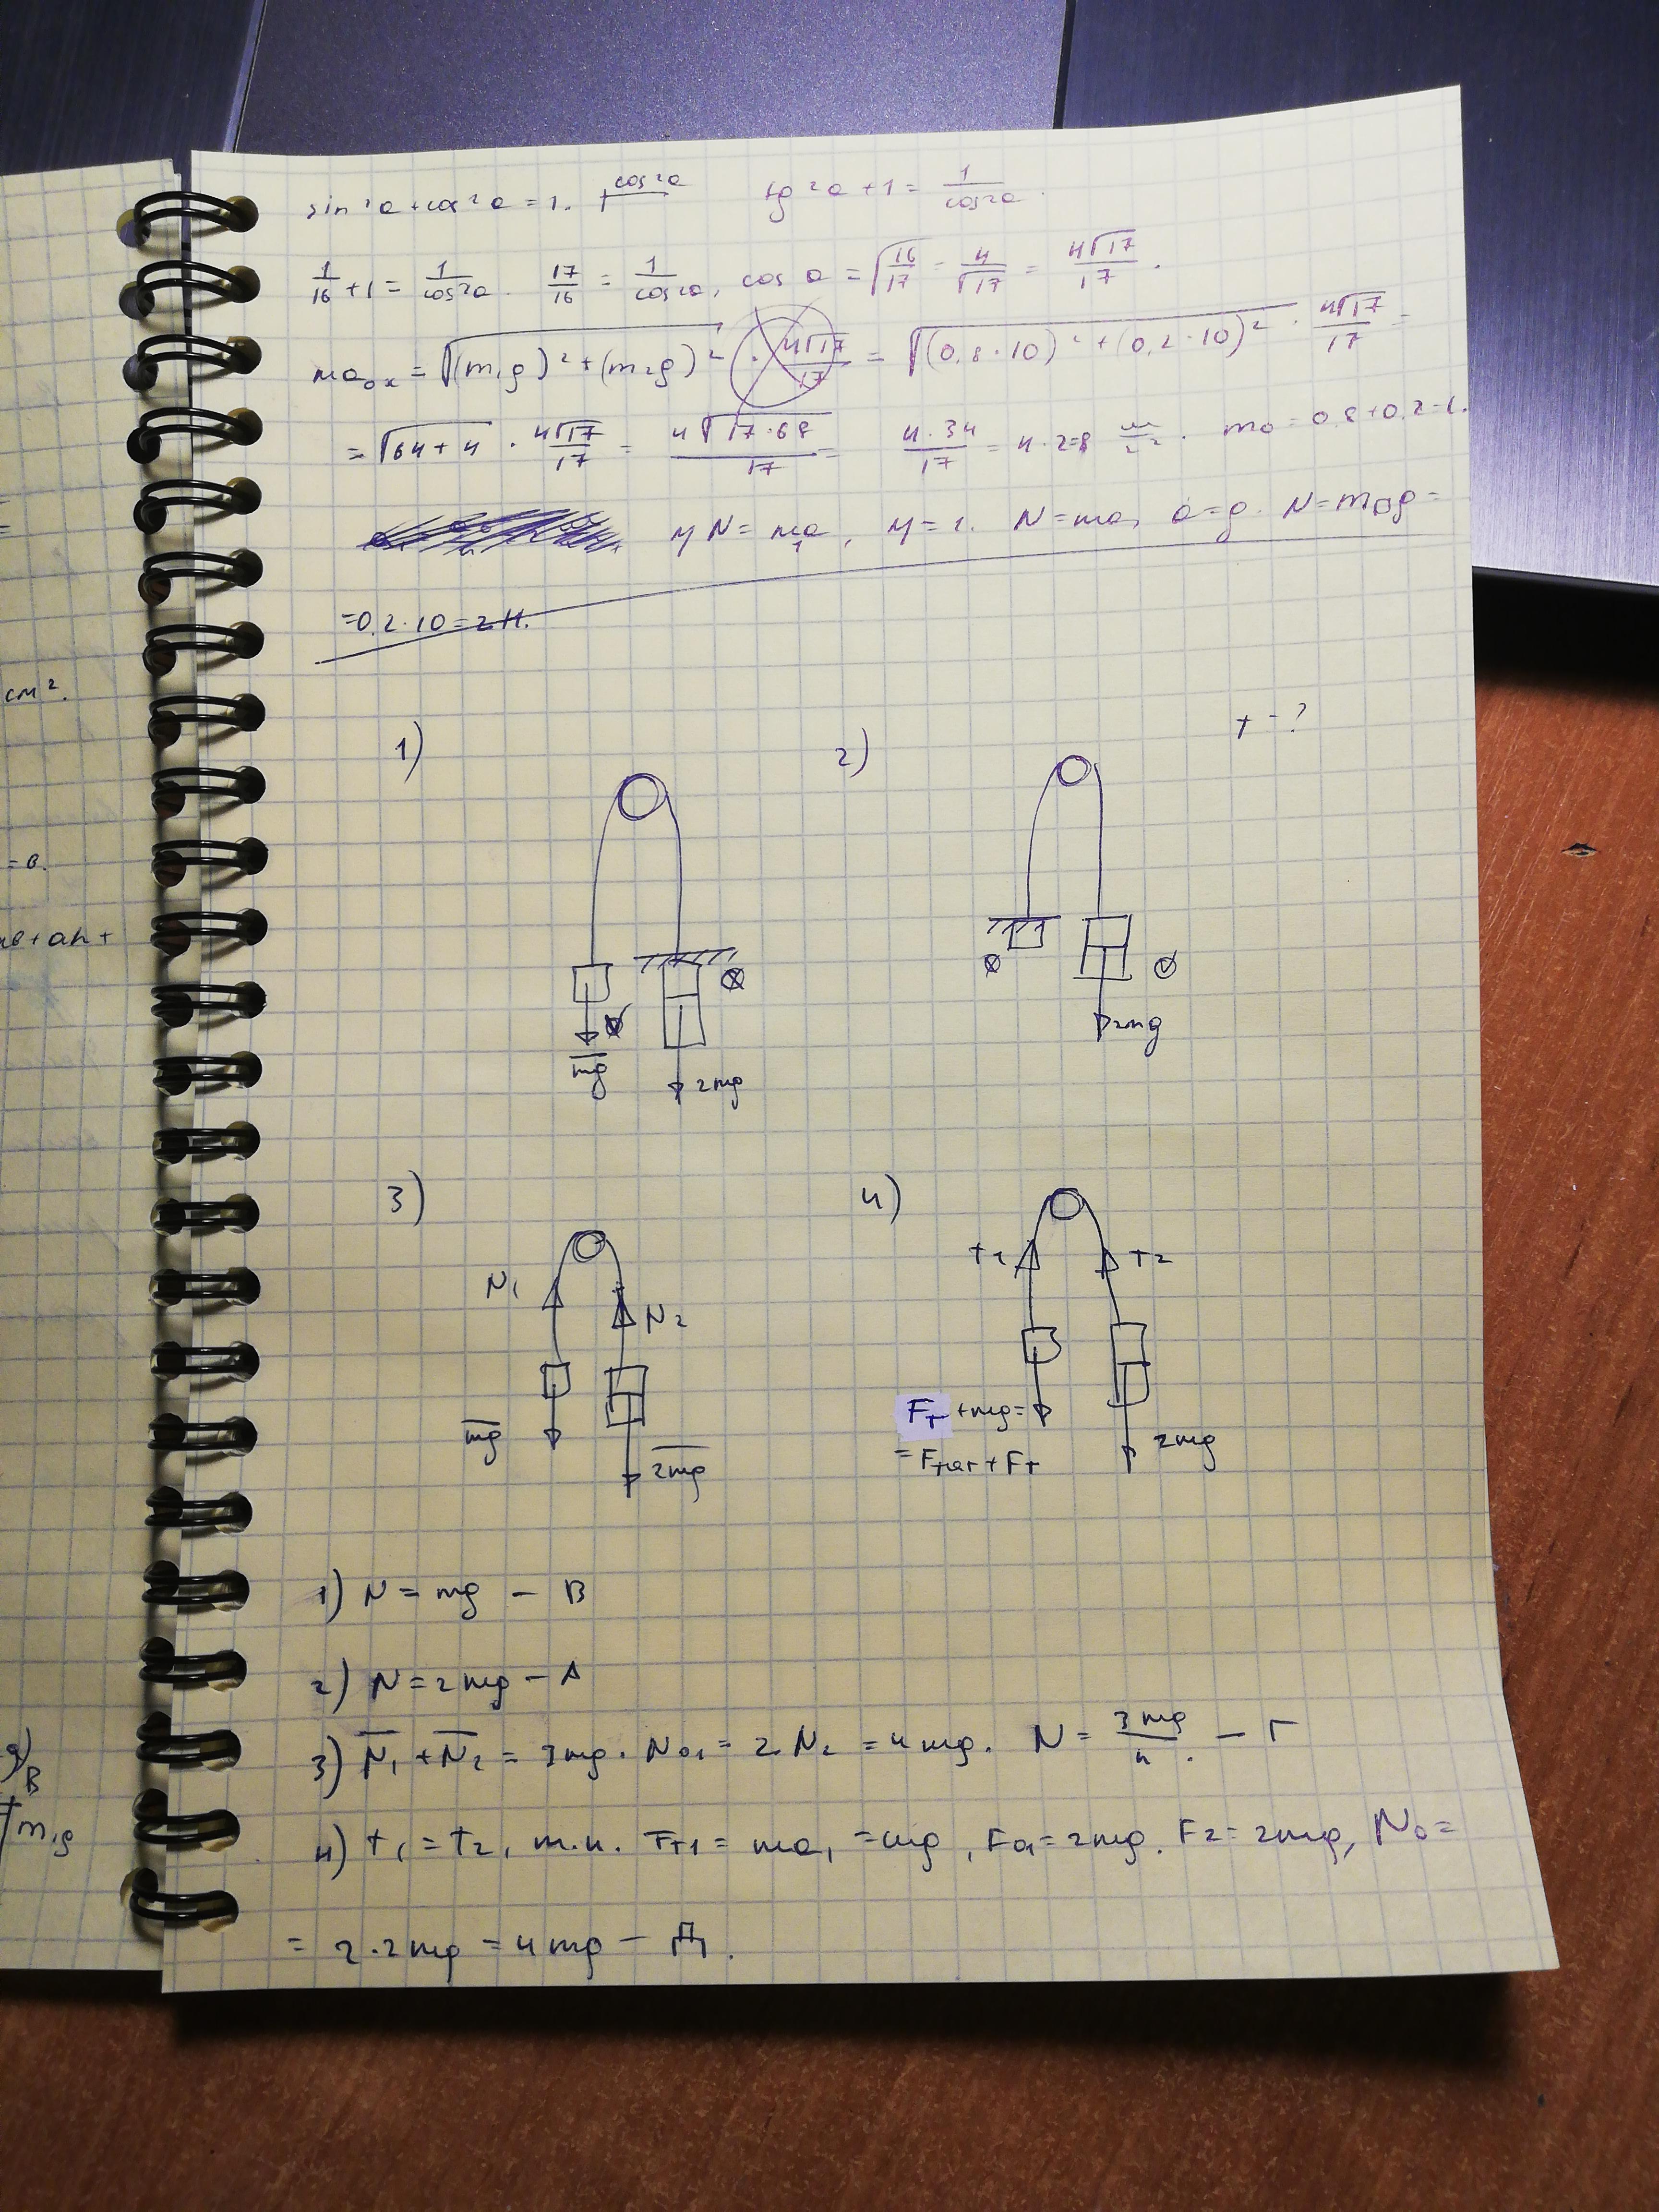 sin²a+cos²a=1. | cos²a tg²a+1= 1/cos²a.
1/16+1= 1/cos²a. 17/16 = 1/cos²a, cos a =√16/17 = 4/√17 = 4√17/17.
ma₀ₓ = √(m₁g)²+(m₂g)² · 4√17/17 = √(0,8·10)²+(0,2·10)² · 4√17/17 =
= √64+4 · 4√17/17 = 4√17·68/17 = 4·34/17 = 4·2=8 м/с². m₀=0,8+0,2=1.
M N = ma, M=1. N=ma, a=g. N=m g=
=0,2·10=2Н.
см².
=0.
+ah+
1)
2)
T-?
mg
2mg
2mg
3)
4)
N₁
N₂
mg
2mg
T₁
T₂
Fт +mg=
=Fтяг+Fт
2mg
1) N = mg – В
2) N=2mg – А
3) N₁+N₂ = 3mg. N₀₁= 2N₂ =4mg. N= 3mg/4. – Г
4) T₁=T₂, т.к. Fт₁= ma, =mg, F₀₁=2mg. F₂=2mg, N₀=
= 2·2mg =4mg – Д.
В
m₁g